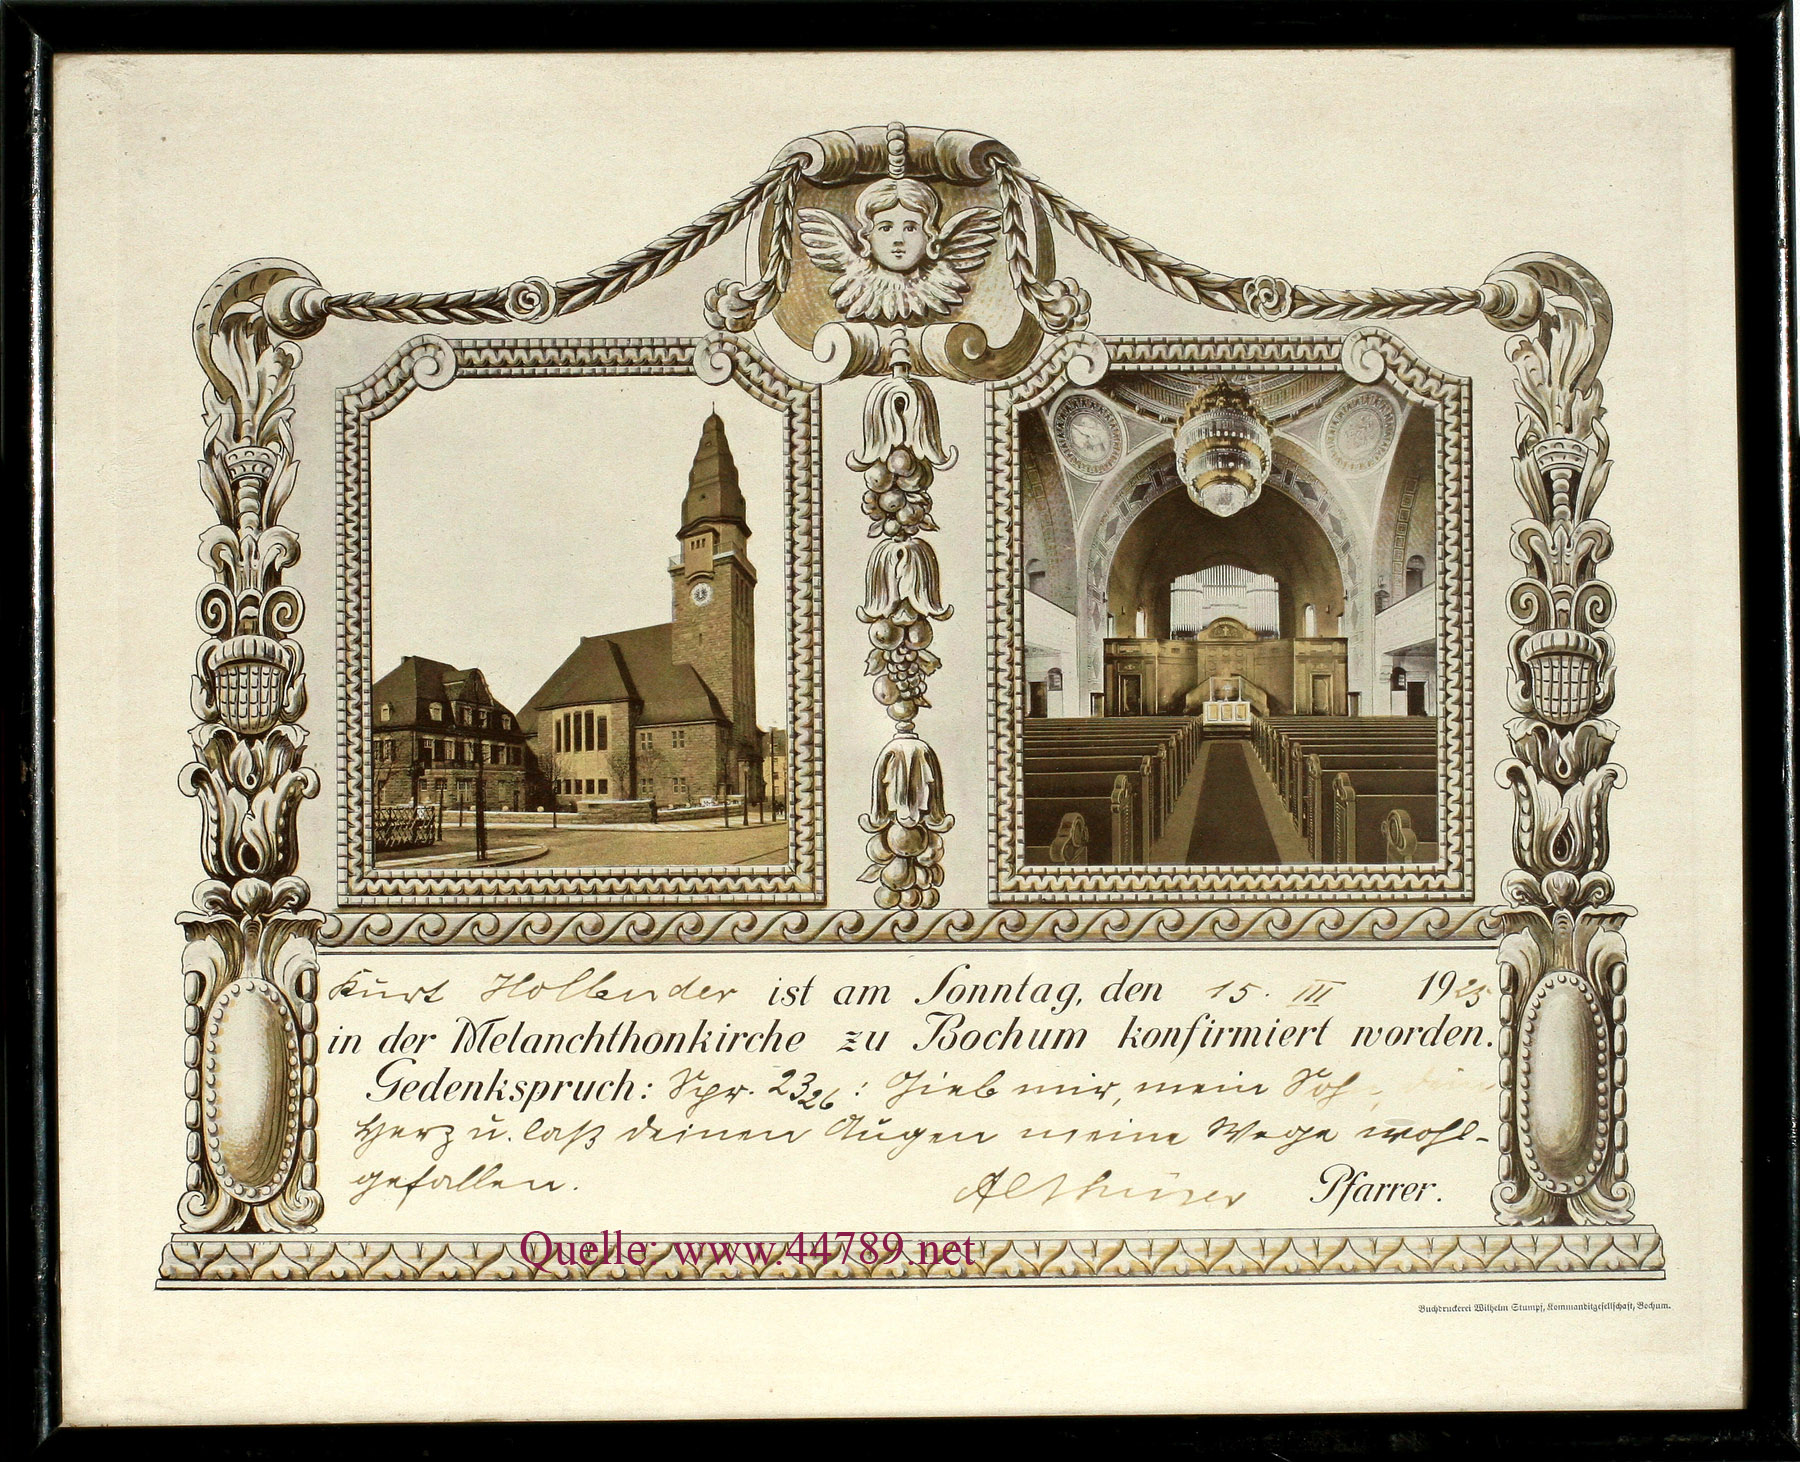 Kurt Hollender ist am Sonntag, den 15. III 1925
in der Melanchthonkirche zu Bochum konfirmiert worden.
Gedenkspruch: Spr. 23 26 : Gieb mir, mein Sohn, dein
Herz u. laß deinen Augen meine Wege wohl-
gefallen. Pfarrer.
Quelle: www.44789.net
Buchdruckerei Wilhelm Stumpf, Kommanditgesellschaft, Bochum.